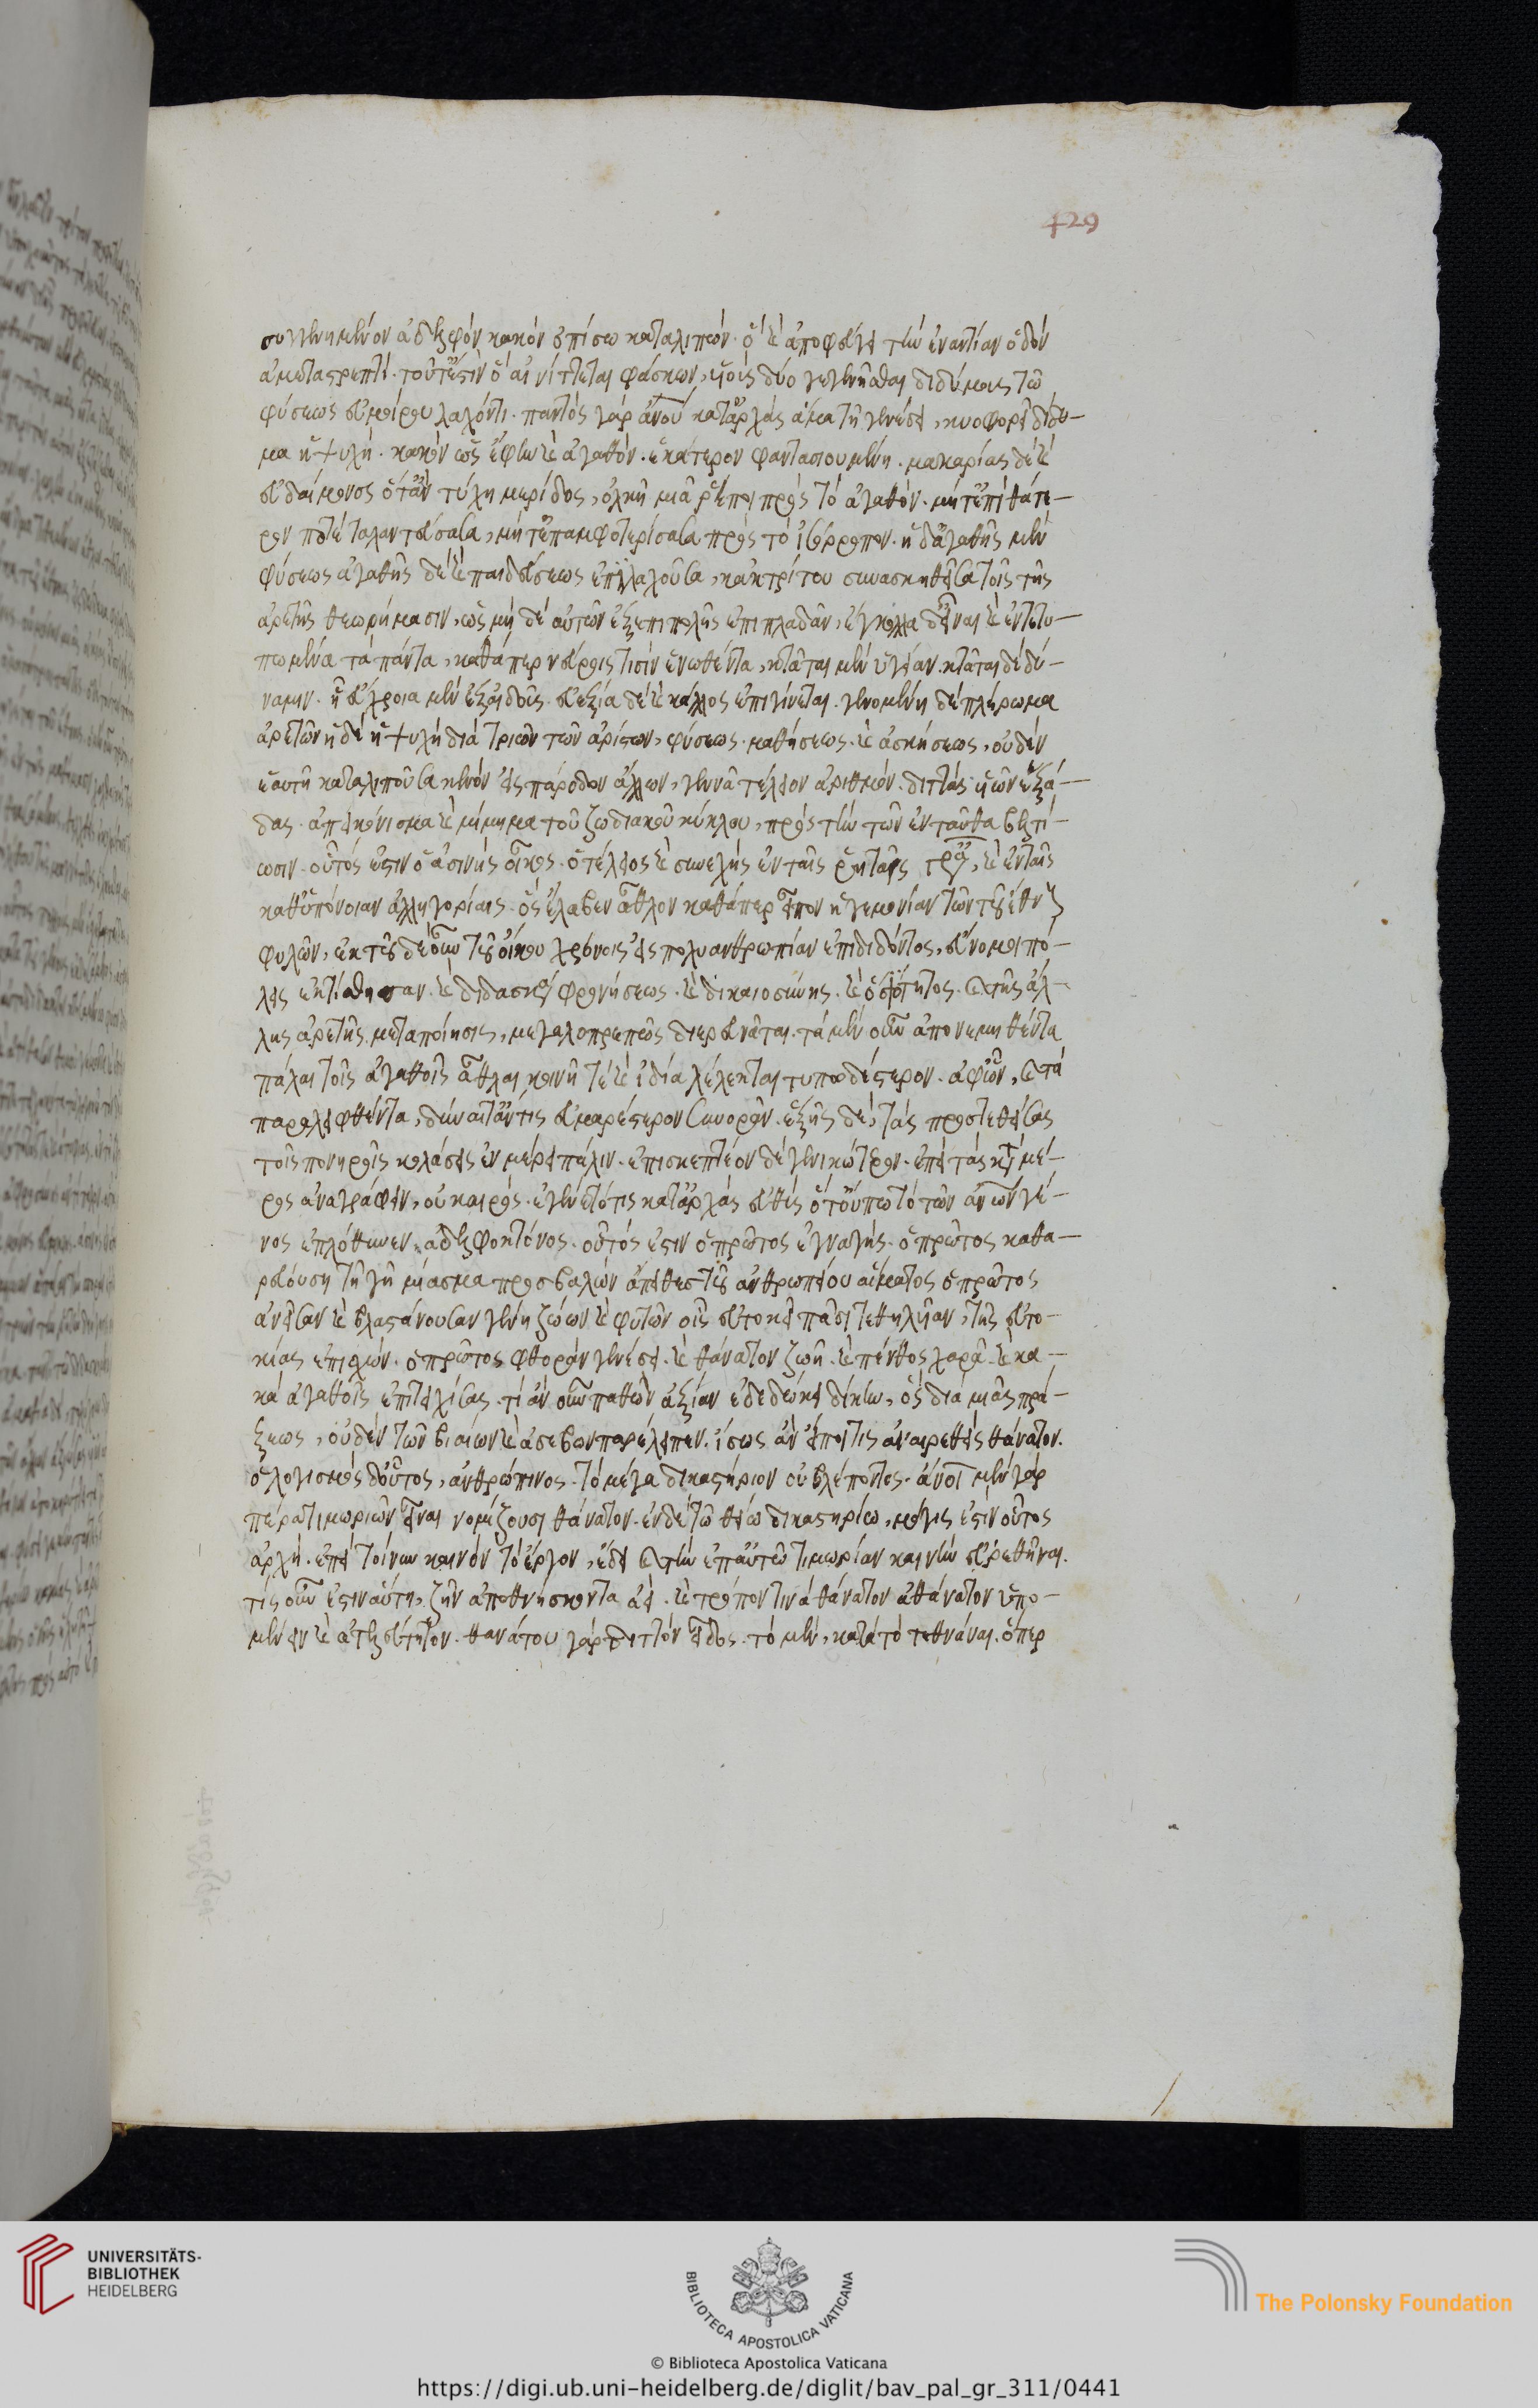 429
συγγενημένον ἀδελφὸν κακὸν ὀπίσω καταλιπών. ὁ καὶ ἀποφεύγει τὴν ἐναντίαν ὁδὸν
ἀμεταστρεπτί. τοῦτ' ἔστιν ὃ αἰνίττεται φάσκων, δύο γεγενῆσθαι διδύμους τῷ
φύσεως εὐμοίρου λαχόντι. παντὸς γὰρ ἀνου κατ' ἀρχὰς ἅμα τῆ γενέσει, κυοφορεῖ δίδυ-
μα ἡ ψυχή. κακὸν ὡς ἔφην καὶ ἀγαθόν. ἑκάτερον φαντασιουμένη. μακαρίας δὲ καὶ
εὐδαίμονος ὅταν τύχη μερίδος, ὁλκῆ μιᾶ ῥέπει πρὸς τὸ ἀγαθόν. μήτ' ἐπὶ θάτε-
ρον ποτὲ ταλαντεύσασα, μήτ' ἐπαμφοτερίσασα πρὸς τὸ ἰσόρροπον. ἡ δ' ἀγαθῆς μὲν
φύσεως ἀγαθῆς δὲ καὶ παιδεύσεως ἐπιλαχοῦσα, κἀκ τρίτου συνασκηθεῖσα τοῖς τῆς
ἀρετῆς θεωρήμασιν, ὡς μηδὲ αὐτῶν ἐξεπιπολῆς ἐπιπλαδᾶν, ἔγκολλα δ' εἶναι καὶ ἐντετυ-
πωμένα τὰ πάντα, καθάπερ νεύροις τισὶν ἑνωθέντα, κτᾶται μὲν ὑγείαν. κτᾶται δὲ δύ-
ναμιν. ἡ εὔχροια μὲν ἐξ αἰδοῦς. εὐεξία δὲ καὶ κάλλος ἐπιγίνεται. γενομένη δὲ πλήρωμα
ἀρετῶν ἥδε ἡ ψυχὴ διὰ τριῶν τῶν ἀρίστων, φύσεως. μαθήσεως. καὶ ἀσκήσεως, οὐδὲν
ἑαυτῆ καταλιποῦσα κενὸν εἰς πάροδον ἄλλων, γεννᾶ τέλειον ἀριθμόν. διττὰς υἱῶν ἑξά-
δας. ἀπεικόνισμα καὶ μίμημα τοῦ ζωδιακοῦ κύκλου, πρὸς τὴν τῶν ἐνταῦθα βελτί-
ωσιν. οὗτός ἐστιν ὁ ἀσινὴς οἶκος. ὁ τέλειος καὶ συνεχὴς ἐν ταῖς ῥηταῖς γρ, καὶ ἐν ταῖς
καθ' ὑπόνοιαν ἀλληγορίαις. ὃς ἔλαβεν ἆθλον καθάπερ εἶπον ἡγεμονίαν τῶν τοῦ ἔθνους
φυλῶν, ἐκ τοῦ δὲ οὖν τοῦ οἴκου χρόνοις εἰς πολυανθρωπίαν ἐπιδιδόντος, εὔνομοι πό-
λεις ἐκτίσθησαν. καὶ διδασκαλεῖα φρονήσεως. καὶ δικαιοσύνης. καὶ ὁσιότητος. καὶ τῆς ἄλ-
λης ἀρετῆς μεταποίησις, μεγαλοπρεπῶς διερευνᾶται. τὰ μὲν οὖν ἀπονεμηθέντα
πάλαι τοῖς ἀγαθοῖς ἆθλα κοινῆ τὲ καὶ ἰδία λέλεκται τυπωδέστερον. ἀφ' ὧν, καὶ τὰ
παραλειφθέντα, δύναιτ' ἄν τις εὐμαρέστερον συνορᾶν. ἑξῆς δὲ, τὰς προστεθείσας
τοῖς πονηροῖς κολάσεις ἐν μέρει πάλιν. ἐπισκεπτέον δὲ γενικώτερον. ἐπεὶ τὰς κατὰ μέ-
ρος ἀναγράφειν, οὐ καιρός. ἐγένετό τις κατ' ἀρχὰς εὐθὺς ὅτ' οὔπω τὸ τῶν ἀνων γέ-
νος ἐπλήθυνεν, ἀδελφοκτόνος. οὗτός ἐστιν ὁ πρῶτος ἐναγής. ὁ πρῶτος καθα-
ρευούση τῆ γῆ μίασμα προσβαλὼν ἀπήθες τοῦ ἀνθρωπείου αἵματος ὁ πρῶτος
ἀνεῖσαν καὶ βλαστάνουσαν γένη ζώων καὶ φυτῶν οἷς εὐτοκεῖ πᾶσι τεθηλυῖαν, τῆς εὐτο-
κίας ἐπισχών. ὁ πρῶτος φθορὰν γενέσει. καὶ θάνατον ζωῆ. καὶ πένθος χαρᾶ. καὶ κα-
κὰ ἀγαθοῖς ἐπιτειχίσας. τί ἂν οὖν παθὼν ἀξίαν ἐδεδώκει δίκην, ὃς διὰ μιᾶς πρά-
ξεως, οὐδὲν τῶν βιαίων καὶ ἀσεβῶν παρέλειπεν. ἴσως ἂν εἴποι τις ἀναιρεθεὶς θάνατον.
ὁ λογισμὸς δ' οὗτος, ἀνθρώπινος. τὸ μέγα δικαστήριον οὐ βλέποντος. ἄνοι μὲν γὰρ
πέρα τιμωριῶν εἶναι νομίζουσι θάνατον. ἐν δὲ τῷ θείῳ δικαστηρίῳ, μόγις ἐστὶν οὗτος
ἀρχή. ἐπεὶ τοίνυν καινὸν τὸ ἔργον, ἔδει καὶ τὴν ἐπ' αὐτῷ τιμωρίαν καινὴν εὑρεθῆναι.
τίς οὖν ἐστιν αὕτη. ζῆν ἀποθνήσκοντα ἀεί. καὶ τρόπον τινὰ θάνατον ἀθάνατον ὑπο-
μένειν καὶ ἀτελεύτητον. θανάτου γὰρ διττὸν εἶδος. τὸ μὲν, κατὰ τὸ τεθνάναι. ὅπερ
UNIVERSITÄTS-
BIBLIOTHEK
HEIDELBERG
BIBLIOTECA APOSTOLICA VATICANA
The Polonsky Foundation
© Biblioteca Apostolica Vaticana
https://digi.ub.uni-heidelberg.de/diglit/bav_pal_gr_311/0441